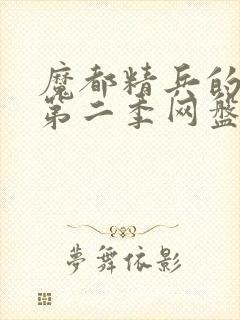 魔都精兵的
第二季网盘
夢舞依影